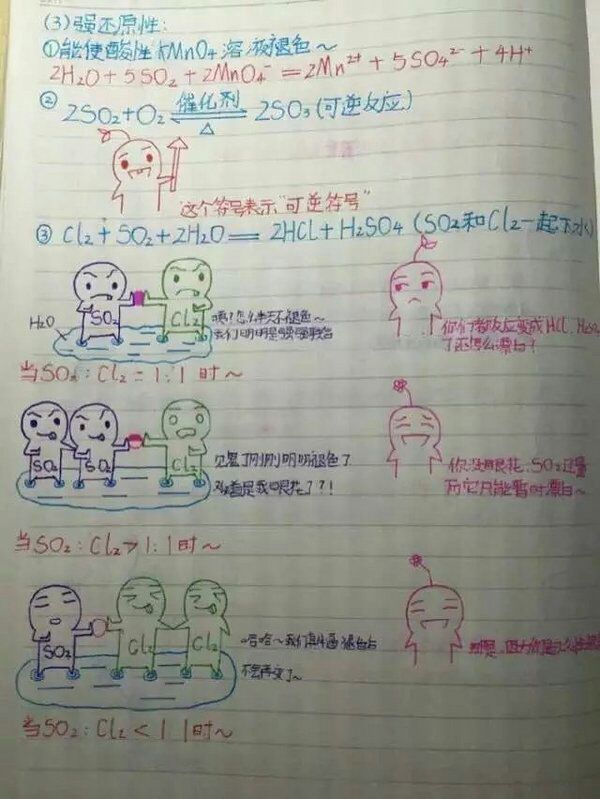 (3)强还原性:
①能使酸性KMnO4溶液褪色~
2H2O+5SO2+2MnO4⁻=2Mn²⁺+5SO4²⁻+4H⁺
② 2SO2+O2 催化剂 ⇌ △ 2SO3(可逆反应)
"这个符号表示"可逆符号"
③ Cl2+SO2+2H2O=2HCl+H2SO4(SO2和Cl2一起下水)
H2O SO2 Cl2
咦?怎么半天不褪色~
我们明明是强强联合
你们都反应变成HCl、H2SO4
了还怎么漂白?
当SO2:Cl2=1:1时~
SO2 SO2 Cl2
见鬼了刚刚明明褪色了
难道是我眼花了??!
你没眼花,SO2过量
所它只能暂时漂白~
当SO2:Cl2>1:1时~
SO2 Cl2 Cl2
哈哈~我们真牛逼褪色后
不会再变了~
因为
当SO2:Cl2<1 1时~